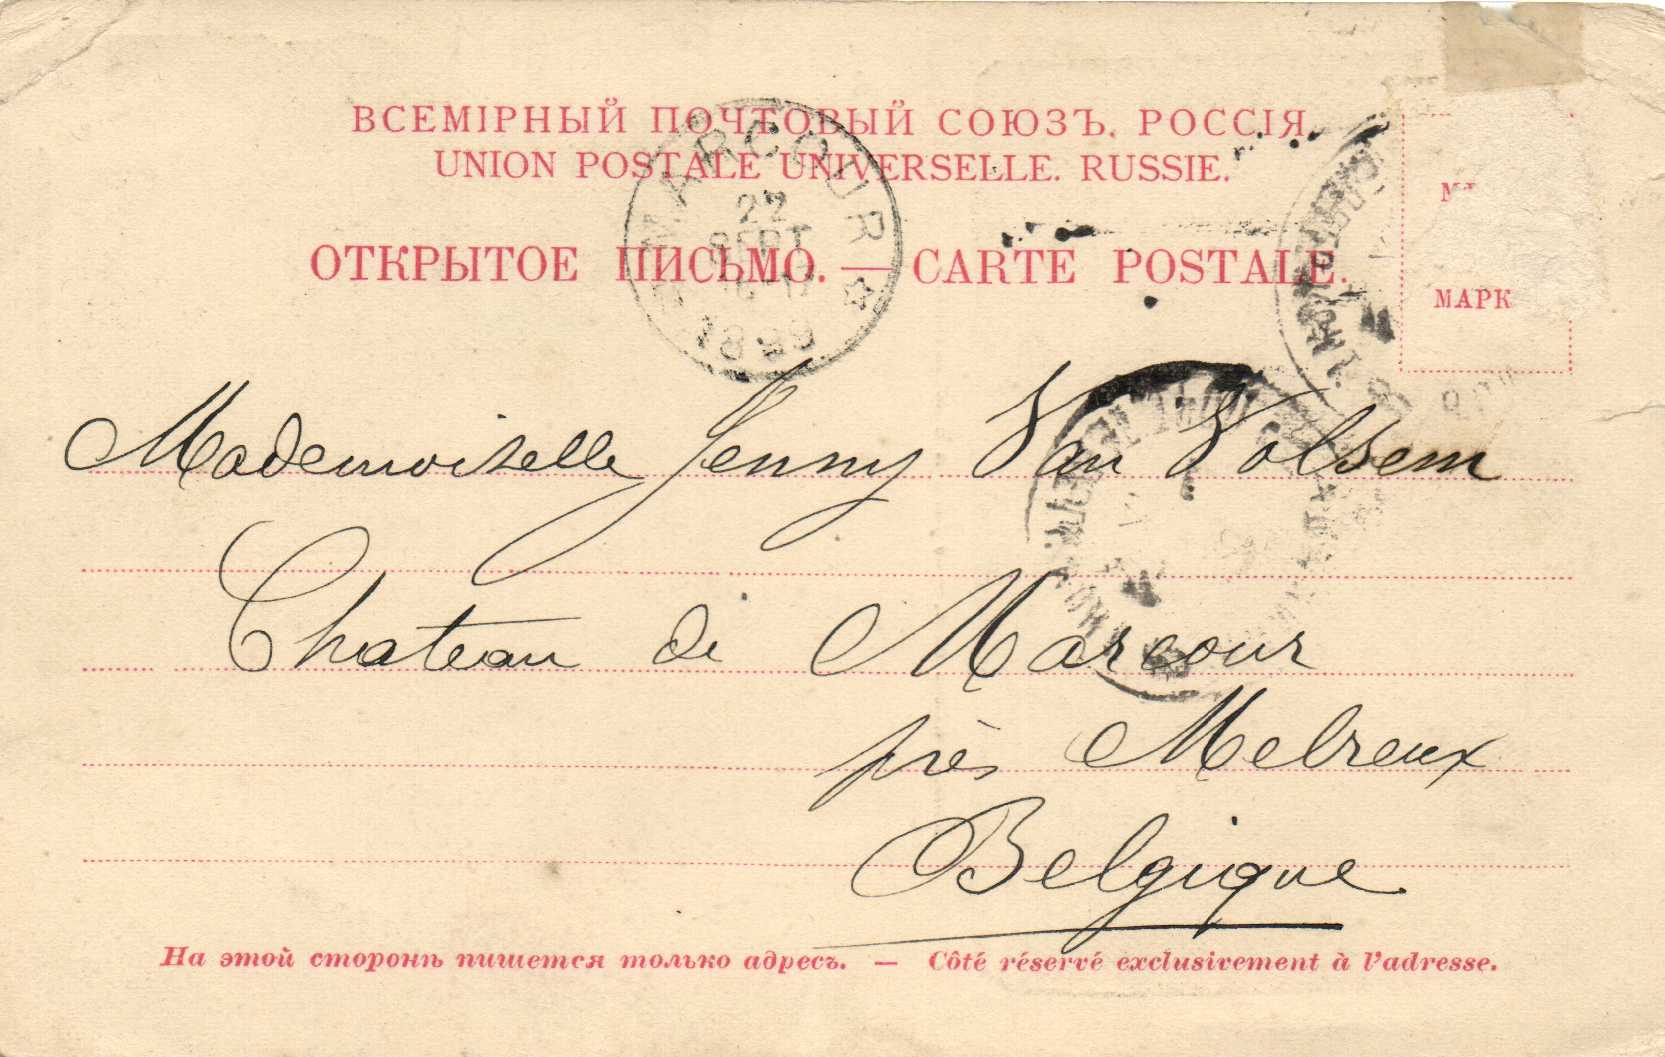 ВСЕМІРНЫЙ ПОЧТОВЫЙ СОЮЗЪ. РОССІЯ
UNION POSTALE UNIVERSELLE. RUSSIE.
MARCOUR
22
SEPT
1899
ОТКРЫТОЕ ПИСЬМО. — CARTE POSTALE.
МАРК
Mademoiselle Jenny Van Volsem
Chateau de Marcour
près Melreux
Belgique
На этой сторонѣ пишется только адресъ. — Côté réservé exclusivement à l'adresse.